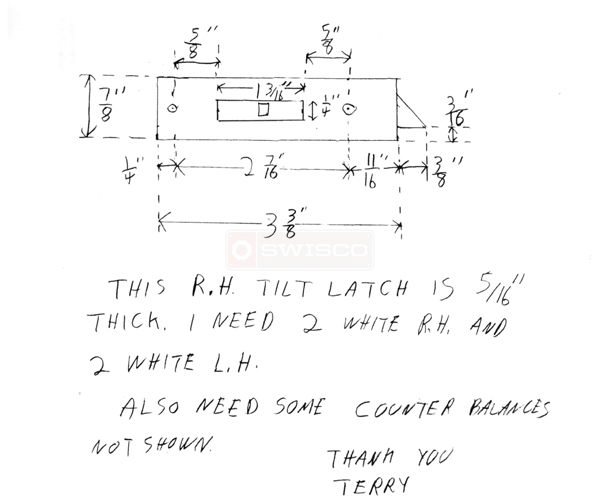 5/8" 5/8"
1 3/16"
7/8" 1/4" 3/16
1/4" 2 7/16" 11/16" 3/8"
3 3/8"
SWISCO
THIS R.H. TILT LATCH IS 5/16"
THICK. I NEED 2 WHITE R.H. AND
2 WHITE L.H.
ALSO NEED SOME COUNTER BALANCES
NOT SHOWN.
THANK YOU
TERRY